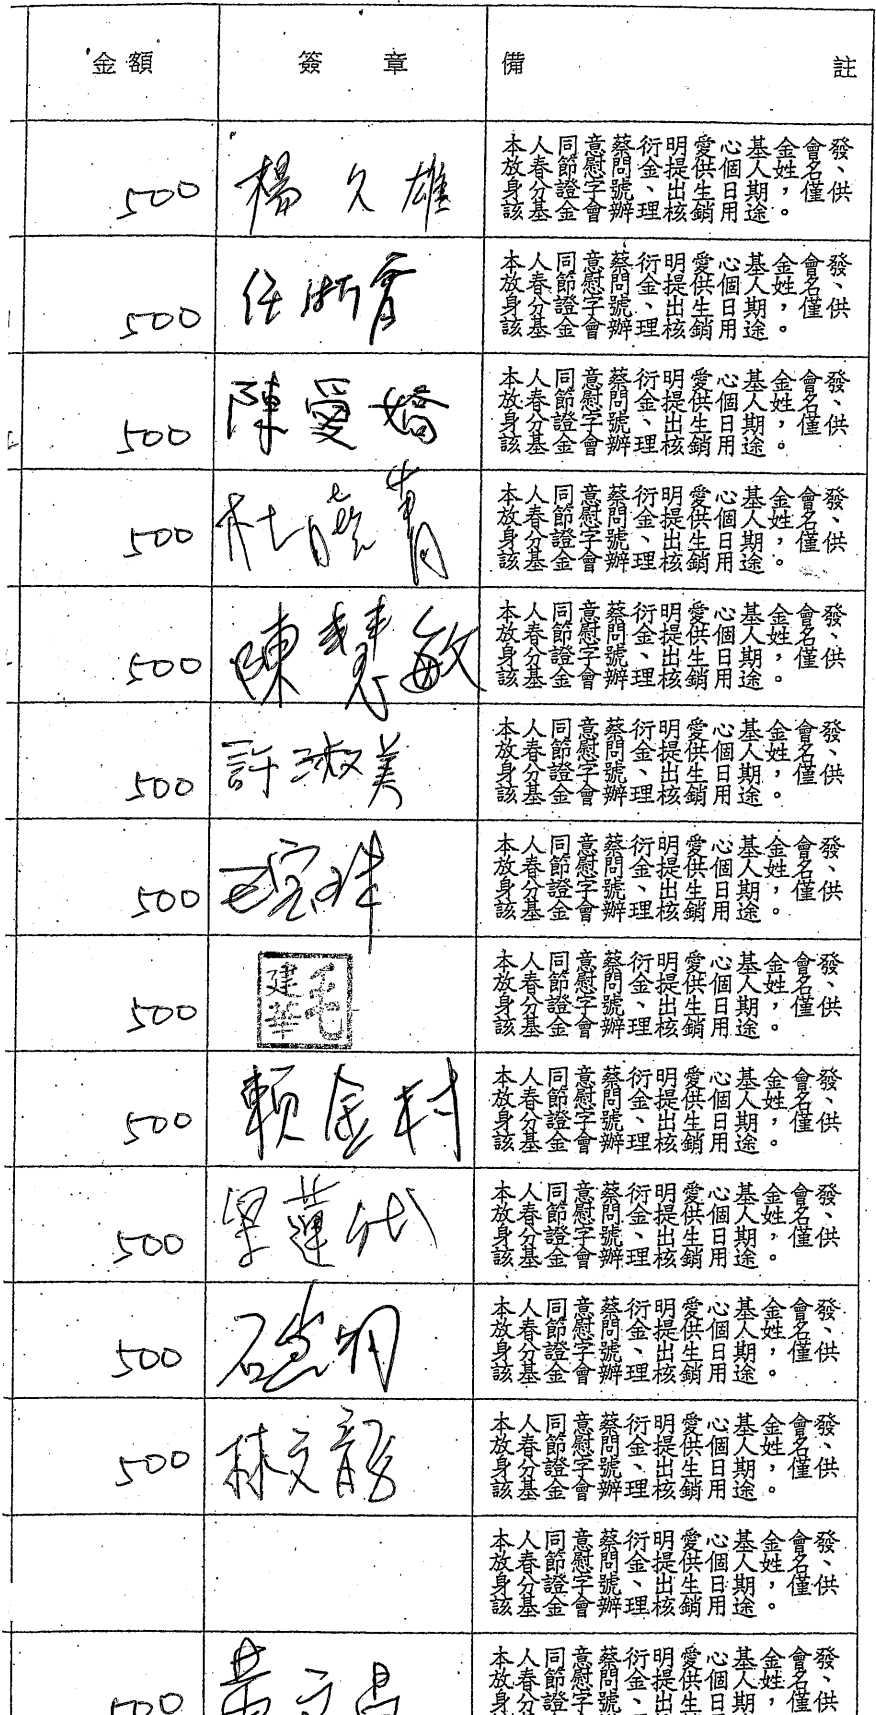 金額 簽章 備註
500 楊久雄 本人同意蔡衍明愛心基金會發
放春節慰問金、提供個人姓名、
身分證字號、出生日期,僅供
該基金會辦理核銷用途。
500 任 本人同意蔡衍明愛心基金會發
放春節慰問金、提供個人姓名、
身分證字號、出生日期,僅供
該基金會辦理核銷用途。
500 陳愛嬌 本人同意蔡衍明愛心基金會發
放春節慰問金、提供個人姓名、
身分證字號、出生日期,僅供
該基金會辦理核銷用途。
500 杜曉菁 本人同意蔡衍明愛心基金會發
放春節慰問金、提供個人姓名、
身分證字號、出生日期,僅供
該基金會辦理核銷用途。
500 陳慧敏 本人同意蔡衍明愛心基金會發
放春節慰問金、提供個人姓名、
身分證字號、出生日期,僅供
該基金會辦理核銷用途。
500 許淑美 本人同意蔡衍明愛心基金會發
放春節慰問金、提供個人姓名、
身分證字號、出生日期,僅供
該基金會辦理核銷用途。
500 本人同意蔡衍明愛心基金會發
放春節慰問金、提供個人姓名、
身分證字號、出生日期,僅供
該基金會辦理核銷用途。
500 毛建華 本人同意蔡衍明愛心基金會發
放春節慰問金、提供個人姓名、
身分證字號、出生日期,僅供
該基金會辦理核銷用途。
500 賴金村 本人同意蔡衍明愛心基金會發
放春節慰問金、提供個人姓名、
身分證字號、出生日期,僅供
該基金會辦理核銷用途。
500 蓮 本人同意蔡衍明愛心基金會發
放春節慰問金、提供個人姓名、
身分證字號、出生日期,僅供
該基金會辦理核銷用途。
500 石 本人同意蔡衍明愛心基金會發
放春節慰問金、提供個人姓名、
身分證字號、出生日期,僅供
該基金會辦理核銷用途。
500 林文龍 本人同意蔡衍明愛心基金會發
放春節慰問金、提供個人姓名、
身分證字號、出生日期,僅供
該基金會辦理核銷用途。
本人同意蔡衍明愛心基金會發
放春節慰問金、提供個人姓名、
身分證字號、出生日期,僅供
該基金會辦理核銷用途。
500 黃文昌 本人同意蔡衍明愛心基金會發
放春節慰問金、提供個人姓名、
身分證字號、出生日期,僅供